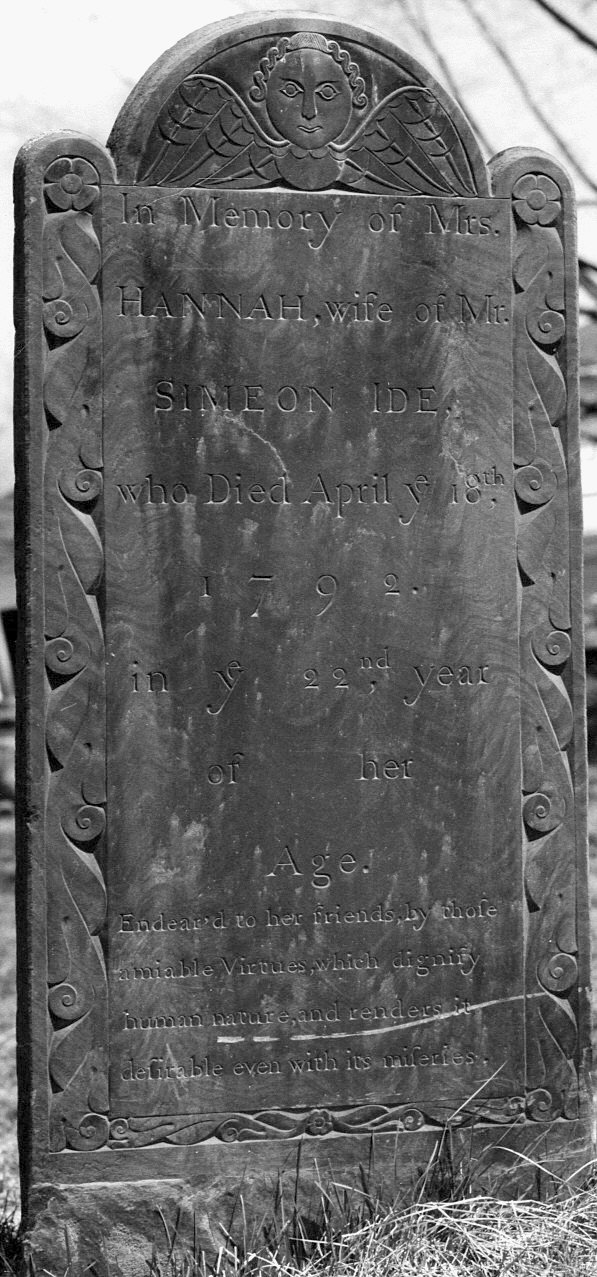 In Memory of Mrs.
HANNAH, wife of Mr.
SIMEON IDE,
who Died April yͤ 18,ᵗʰ
1792.
in yͤ 22,ⁿᵈ year
of her
Age.
Endear'd to her friends, by thoſe
amiable Virtues, which dignify
human nature, and renders it
deſirable even with its miſeries.